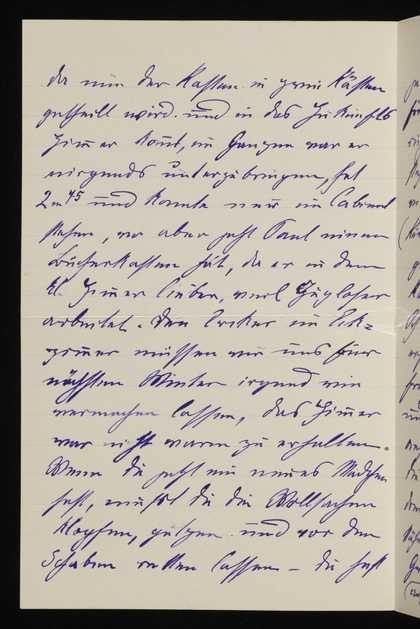 da nun der Kasten in zwei Kästen
getheilt wird und in das Zukunfts
Zimmer kommt, im Ganzen war er
nirgends unterzubringen, hat
2 m 45 und konnte nur im Cabinet
stehen, wo aber jetzt Paul einen
Bücherkasten hat, da er in dem
kl. Zimer lieber, weil Zugloser
arbeitet. Den Erker im Eck=
zimmer müssen wir uns für
nächsten Winter irgend wie
vermachen lassen, das Zimmer
war nicht warm zu erhalten.
Wenn du jetzt ein neues Mädchen
hast, mußt du die Wollsachen
klopfen, putzen und vor den
Schaben retten lassen – du hast